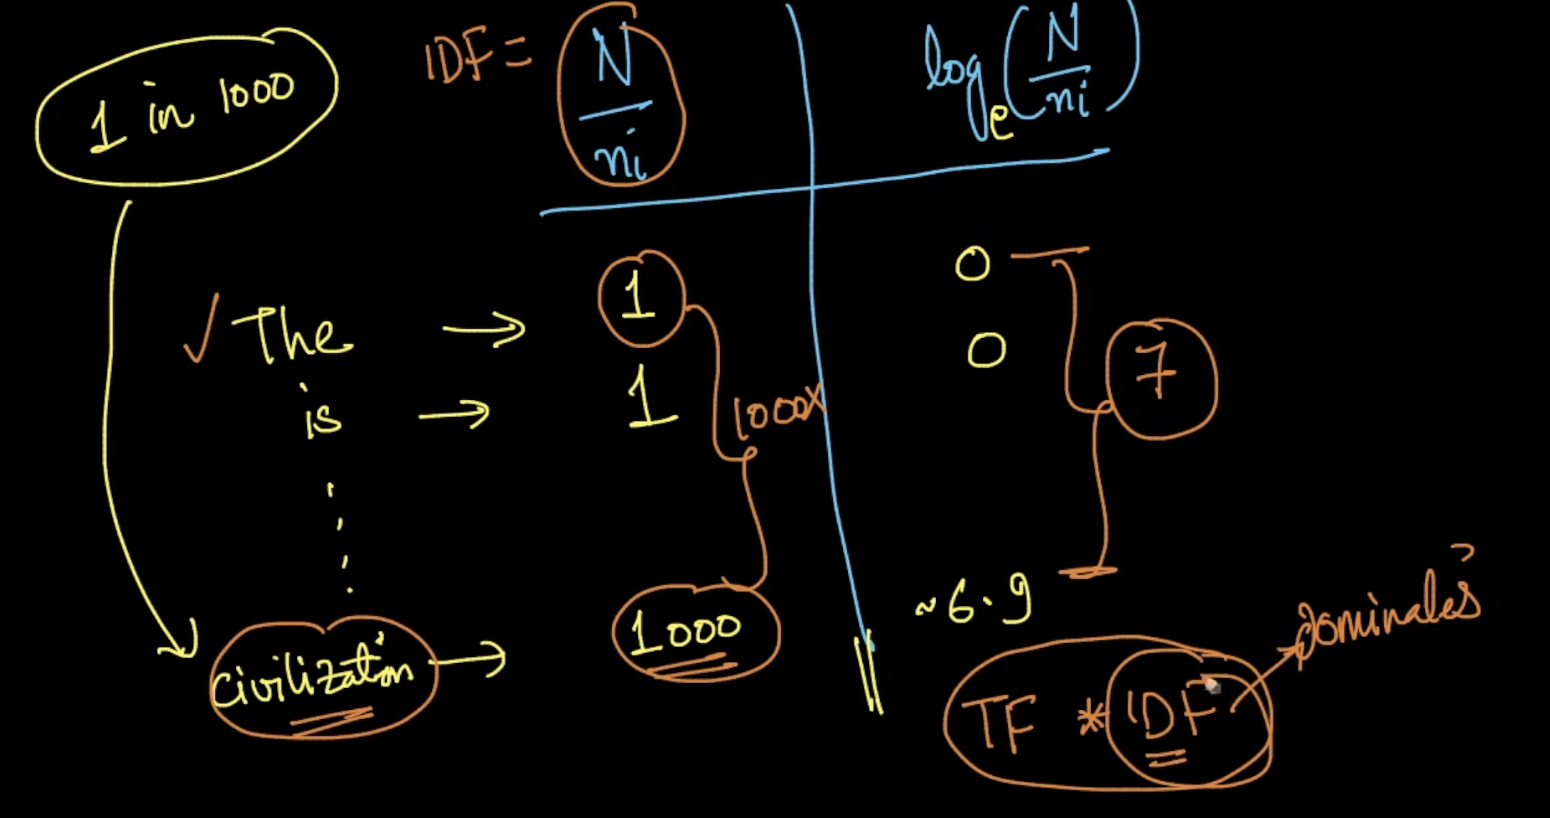 1 in 1000
IDF = N/ni
log e (N/ni)
The → 1 0
is → 1 0
1000X
7
civilization → 1000 ~6.9
TF * IDF
dominates